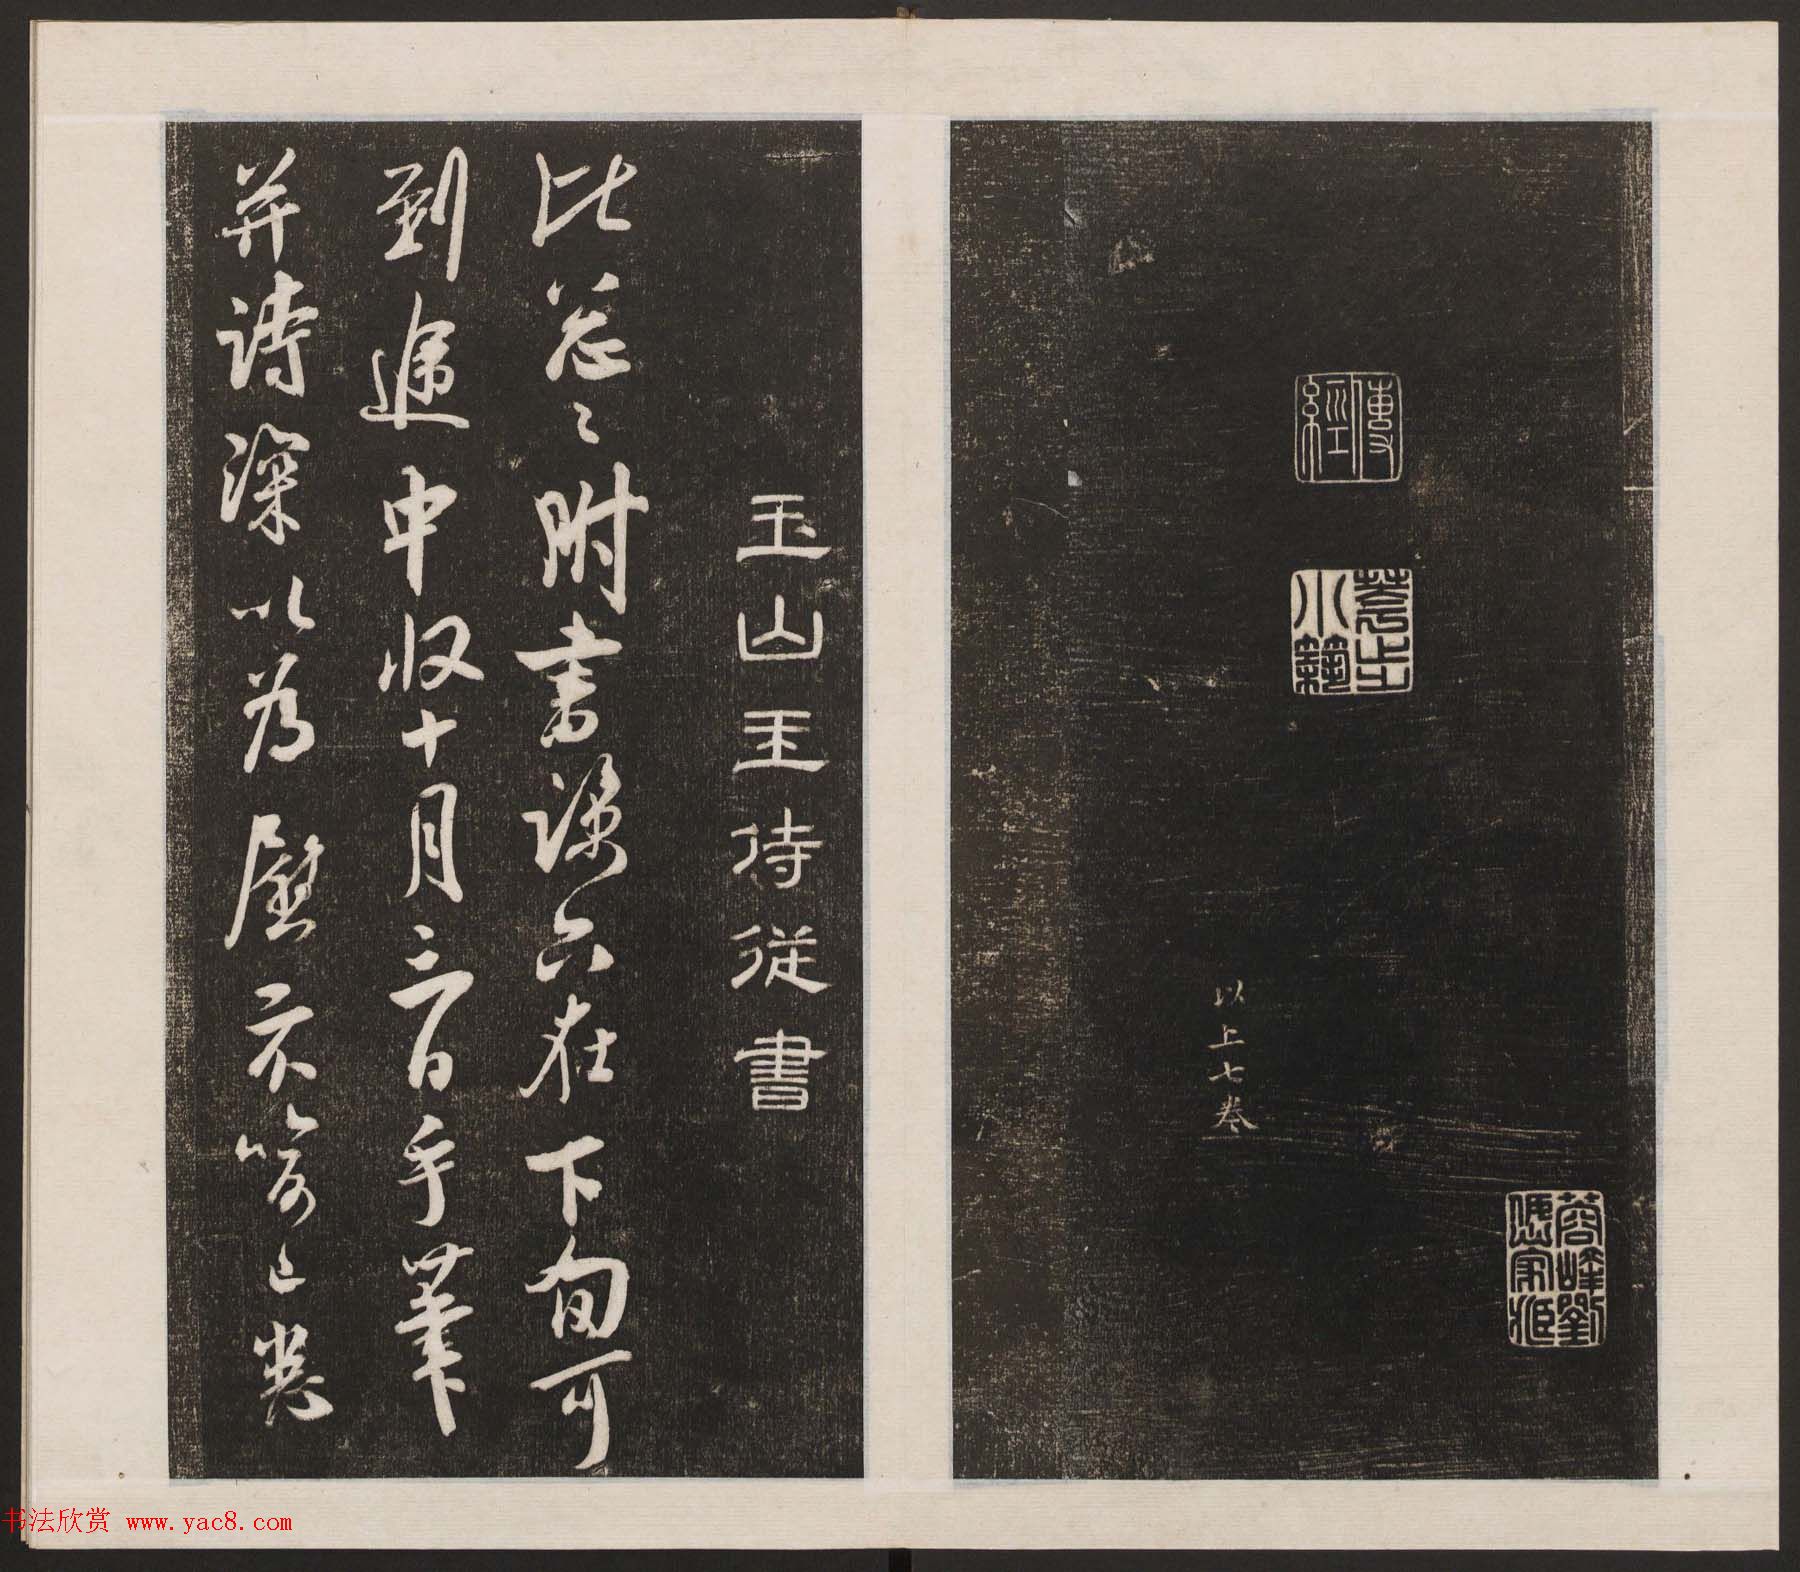 傳經
以上七卷
玉山王待從書
比怱〻附書諒亦在下旬可
到遞中收十月三日手筆
并詩深以為慰示喻已悉
书法欣赏 www.yac8.com